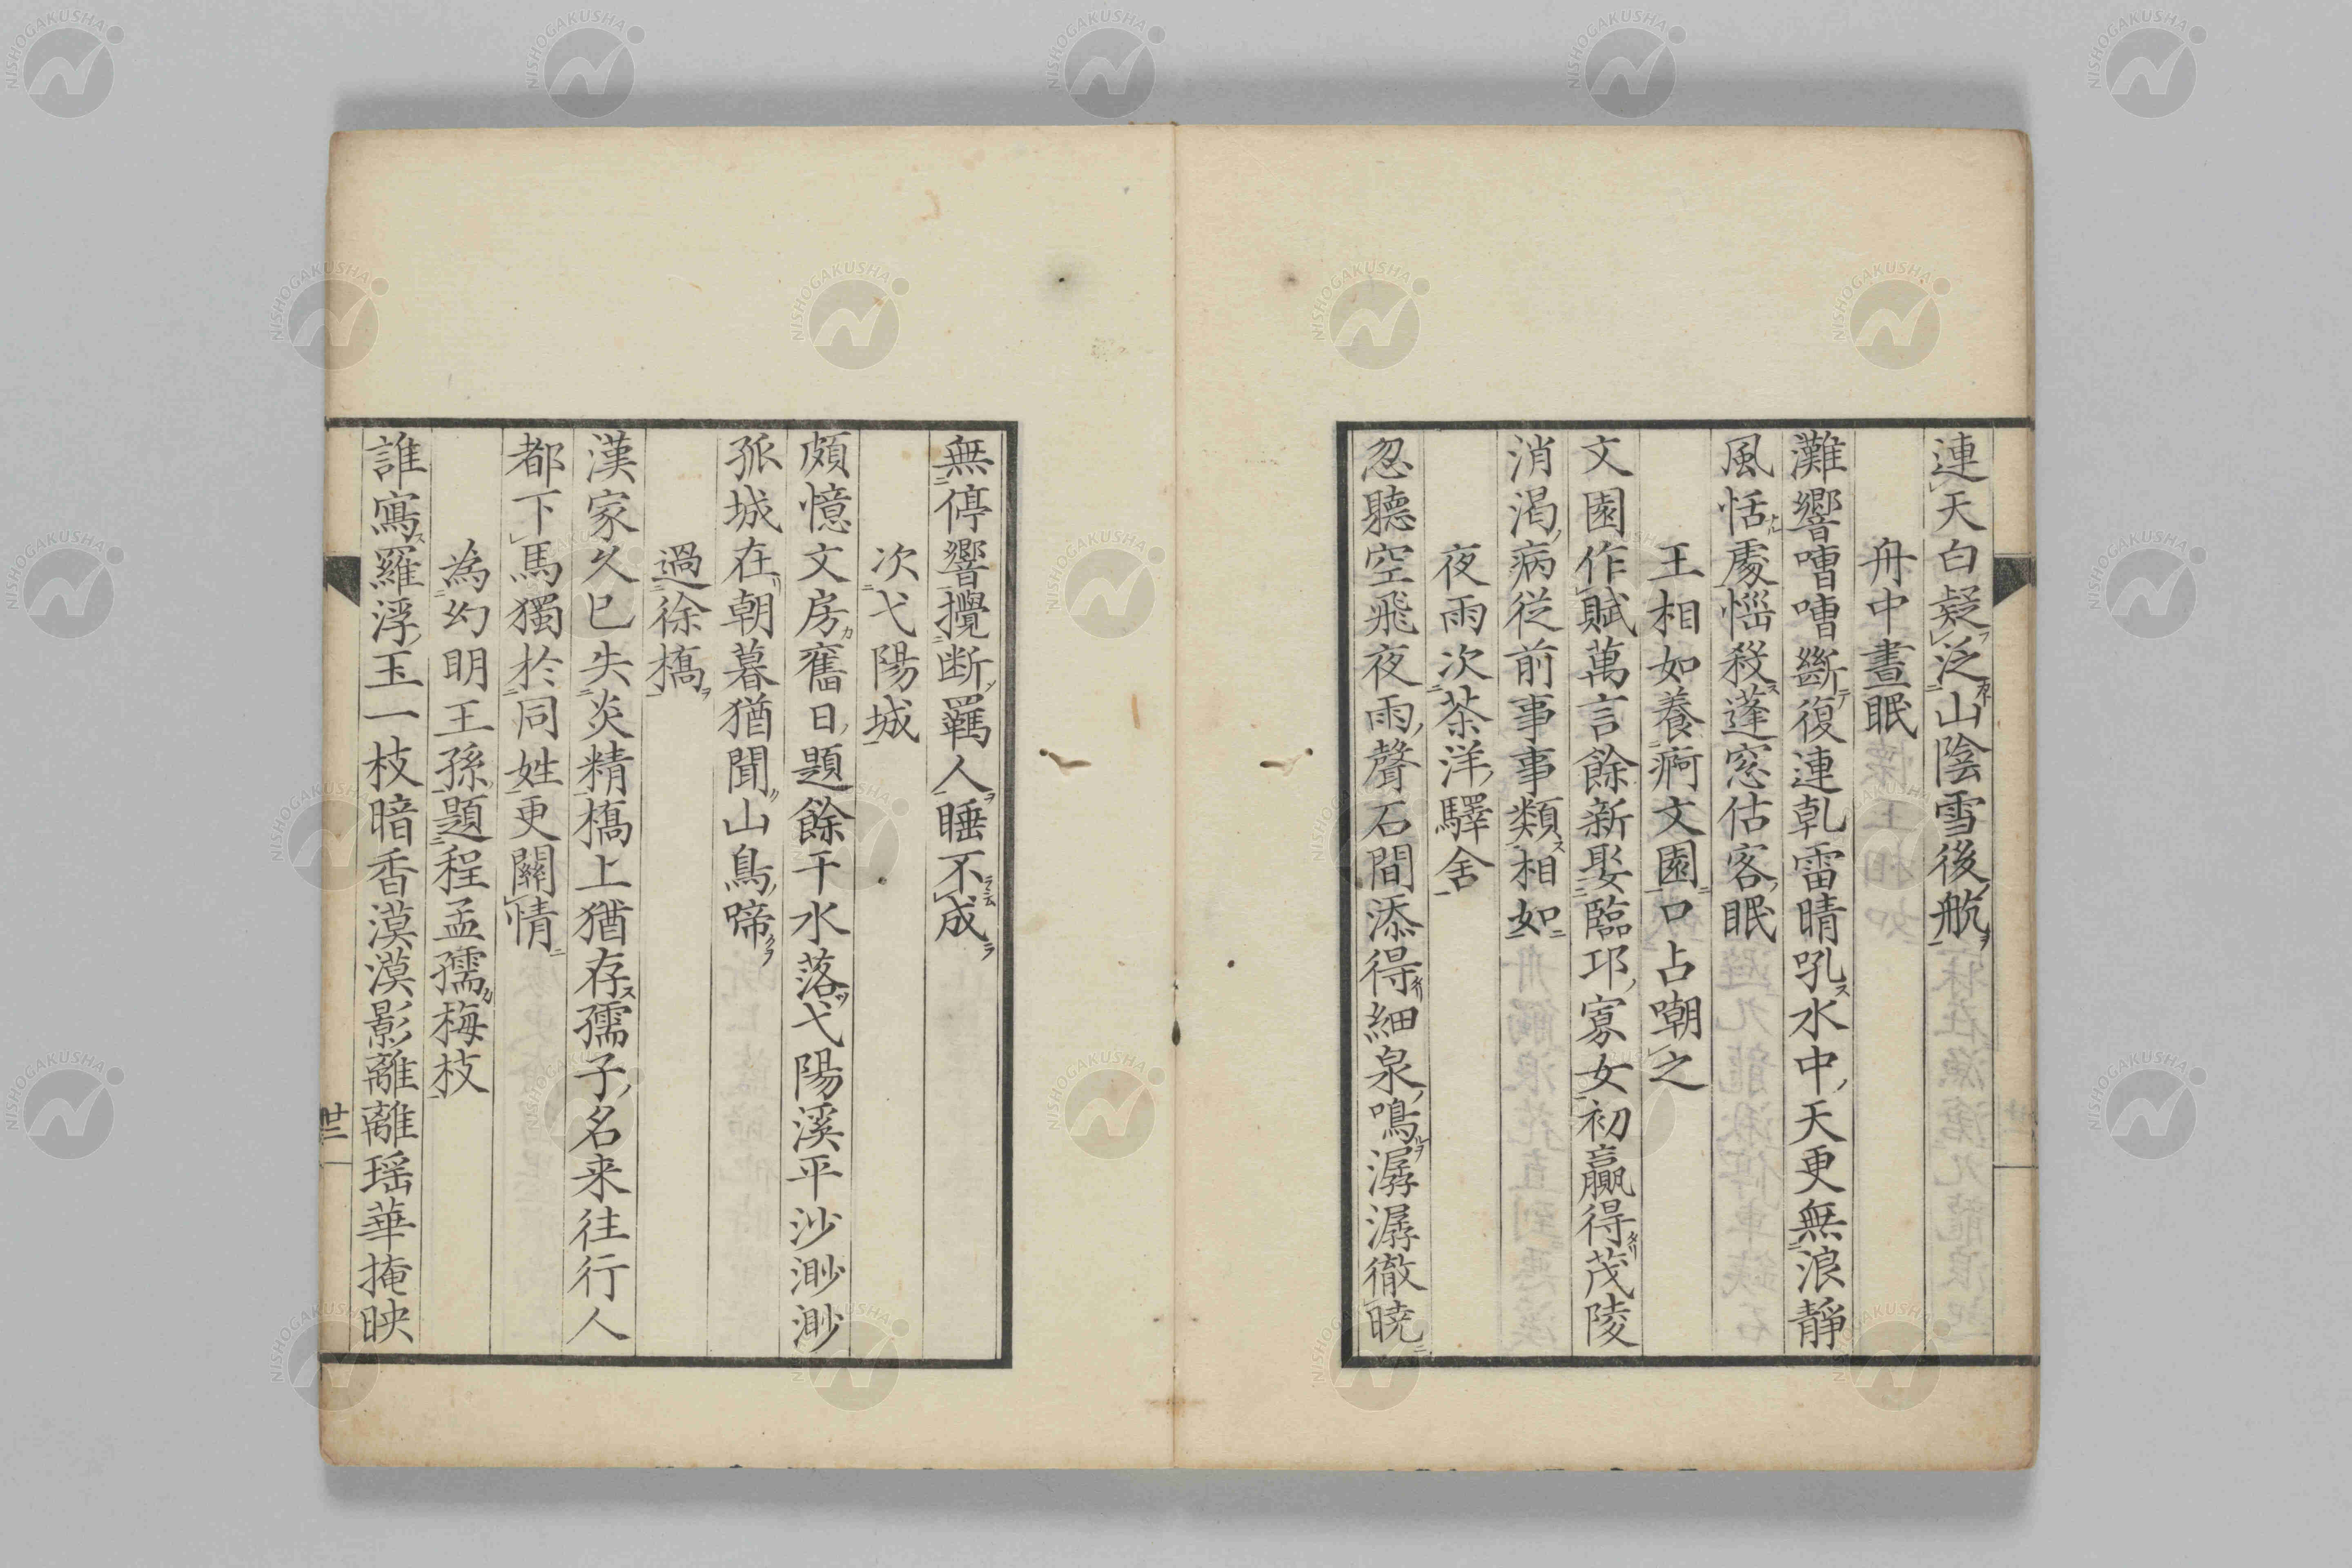 連天白疑泛山陰雪後航
舟中晝眠
灘響嘈嘈斷復連乹雷晴吼水中天更無浪靜
風恬處惱殺蓬窓估客眠
王相如養痾文園口占嘲之
文園作賦萬言餘新娶臨邛寡女初贏得茂陵
消渇病従前事事類相如
夜雨次茶洋驛舍
忽聽空飛夜雨聲石間添得細泉鳴潺潺徹曉
無停響攪断羈人睡不成
次弋陽城
頗憶文房舊日題餘干水落弋陽溪平沙渺渺
孤城在朝暮猶聞山鳥啼
過徐橋
漢家久已失炎精橋上猶存孺子名来往行人
都下馬獨於同姓更關情
為幻明王孫題程孟孺梅枝
誰寫羅浮玉一枝暗香漠漠影離離瑶華掩映
廿二